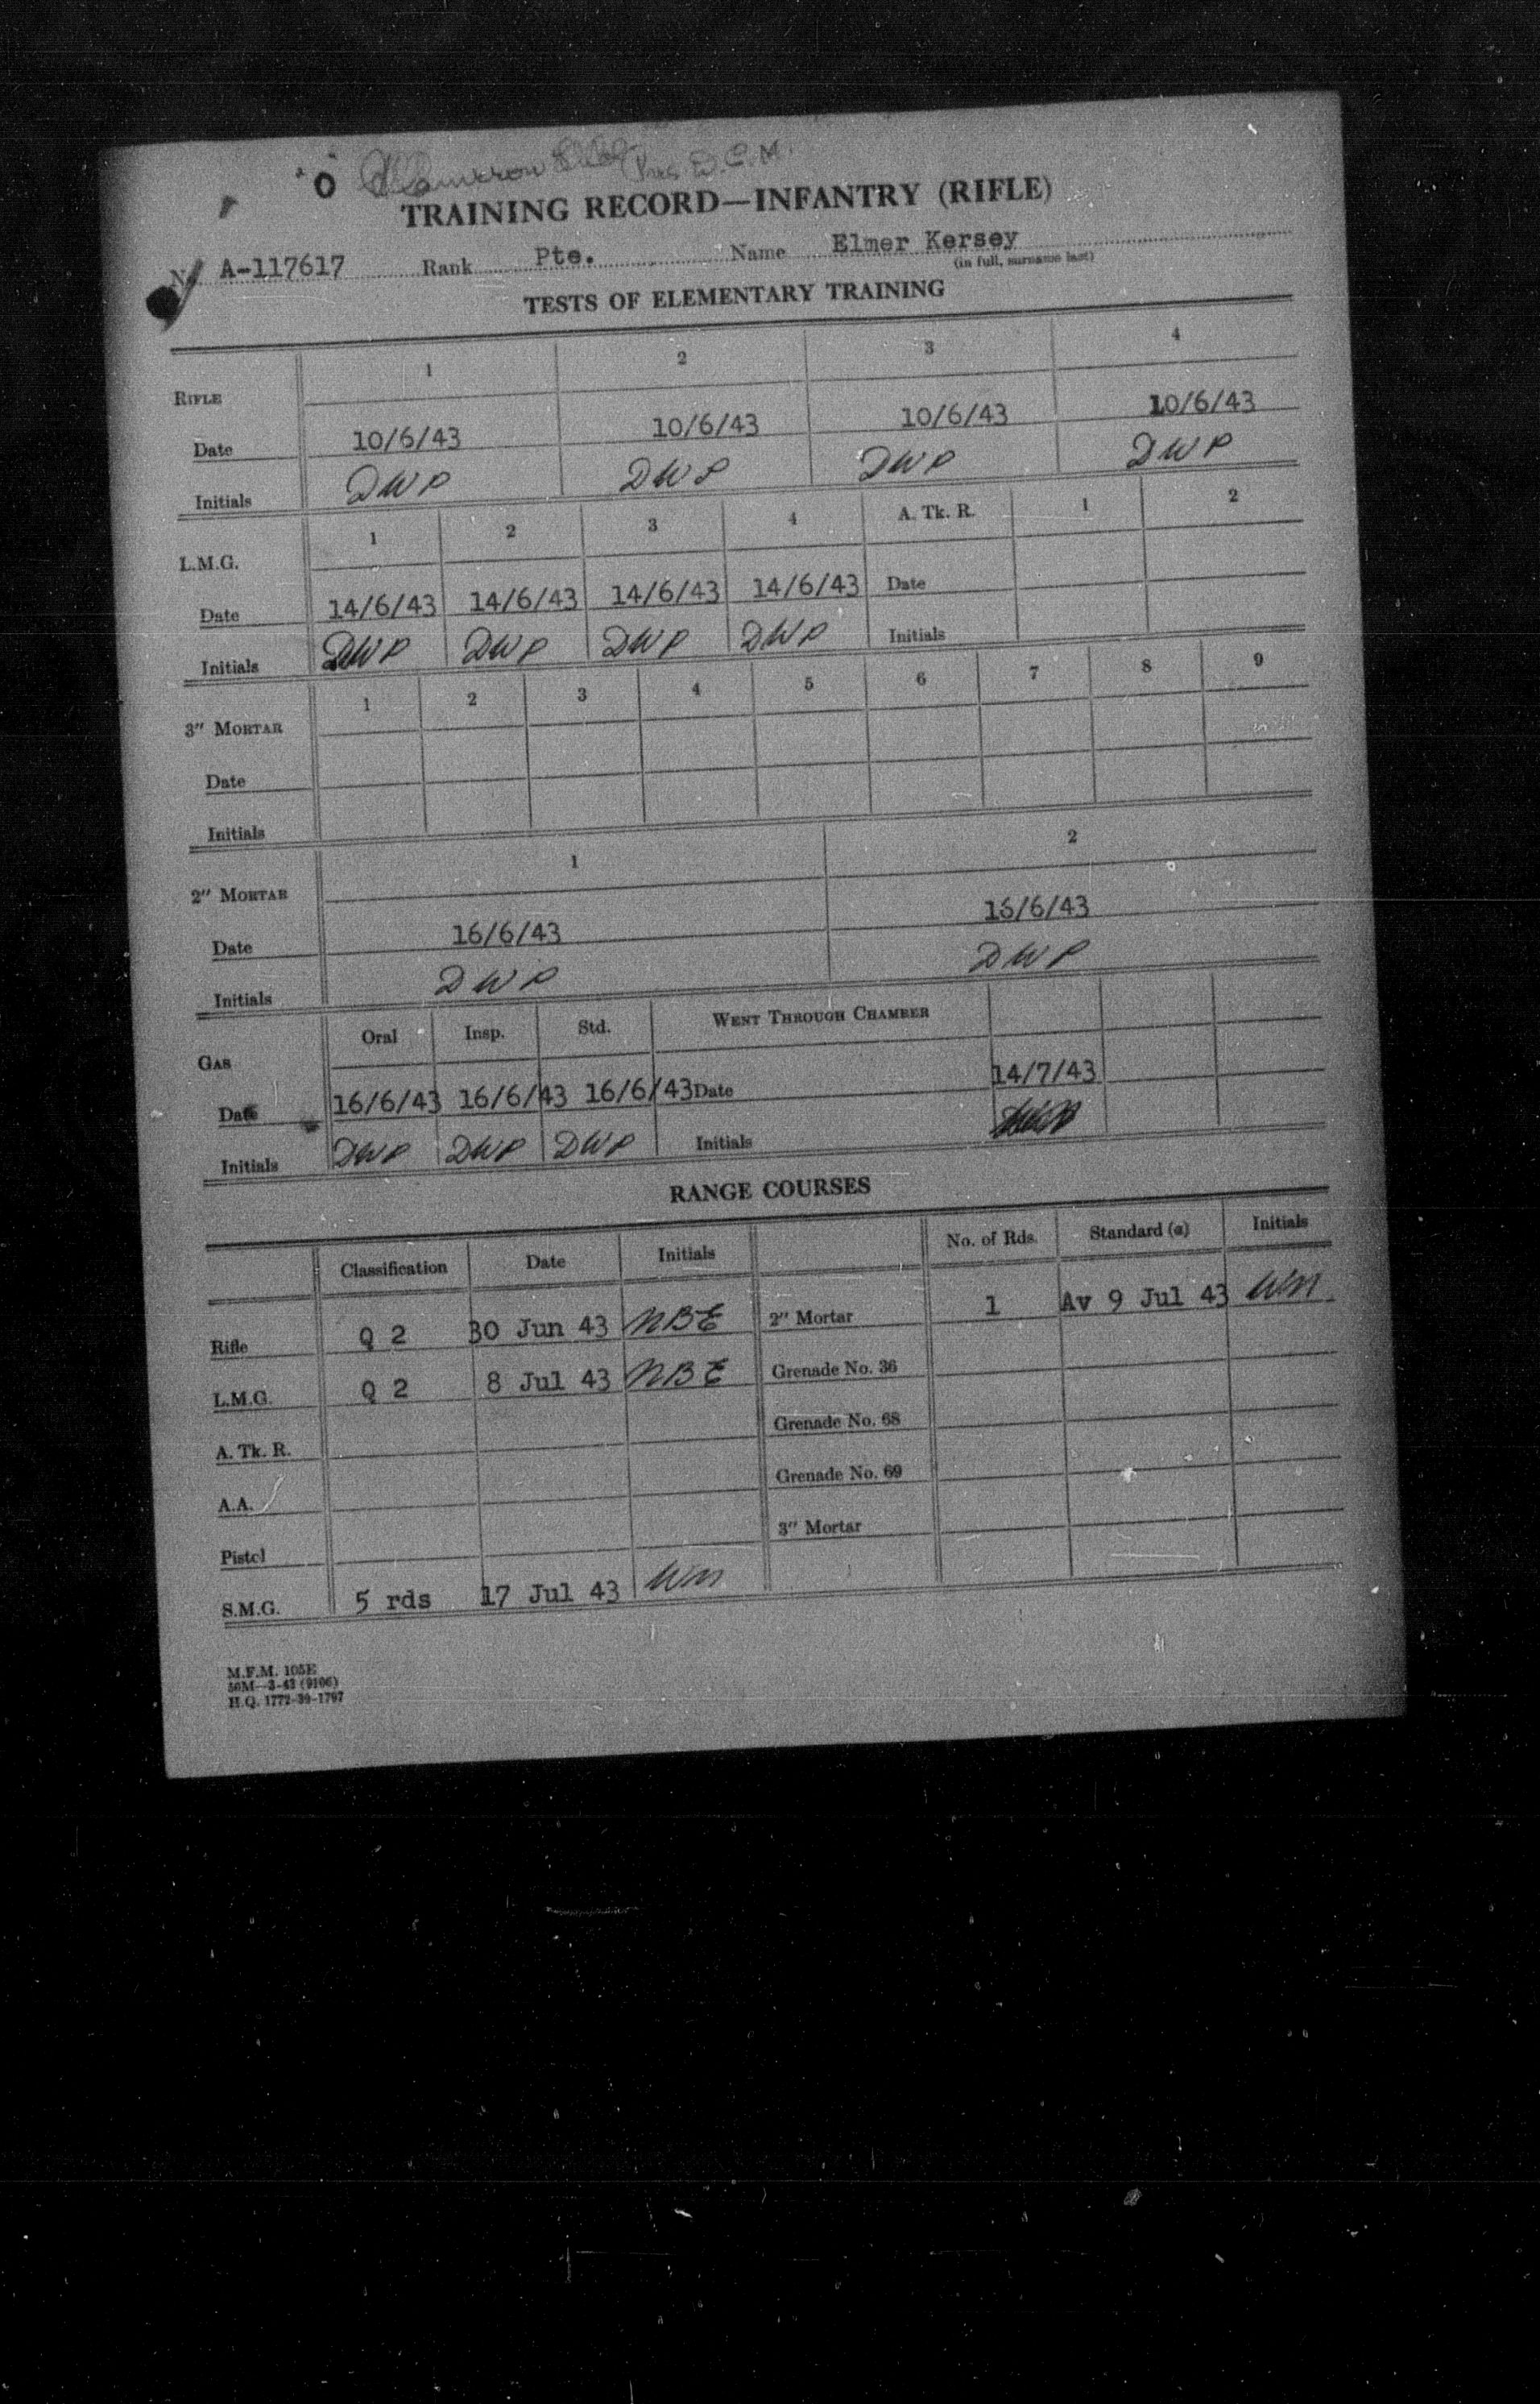 "O"
D.C.M.
TRAINING RECORD—INFANTRY (RIFLE)
A-117617 Rank Pte. Name Elmer Kersey
(in full, surname last)
TESTS OF ELEMENTARY TRAINING
RIFLE 1 2 3 4
Date 10/6/43 10/6/43 10/6/43 10/6/43
Initials DWP DWP DWP DWP
L.M.G. 1 2 3 4 A. Tk. R. 1 2
Date 14/6/43 14/6/43 14/6/43 14/6/43 Date
Initials DWP DWP DWP DWP Initials
3" MORTAR 1 2 3 4 5 6 7 8 9
Date
Initials
2" MORTAR 1 2
Date 16/6/43 16/6/43
Initials DWP DWP
GAS Oral Insp. Std. WENT THROUGH CHAMBER
Date 16/6/43 16/6/43 16/6/43 Date 14/7/43
Initials DWP DWP DWP Initials
RANGE COURSES
Classification Date Initials No. of Rds. Standard (a) Initials
Rifle Q 2 30 Jun 43 NBE 2" Mortar 1 Av 9 Jul 43 WM
L.M.G. Q 2 8 Jul 43 NBE Grenade No. 36
A. Tk. R. Grenade No. 68
A.A. Grenade No. 69
Pistol 3" Mortar
S.M.G. 5 rds 17 Jul 43 WM
M.F.M. 105E
50M—3-43 (9106)
H.Q. 1772-39-1797